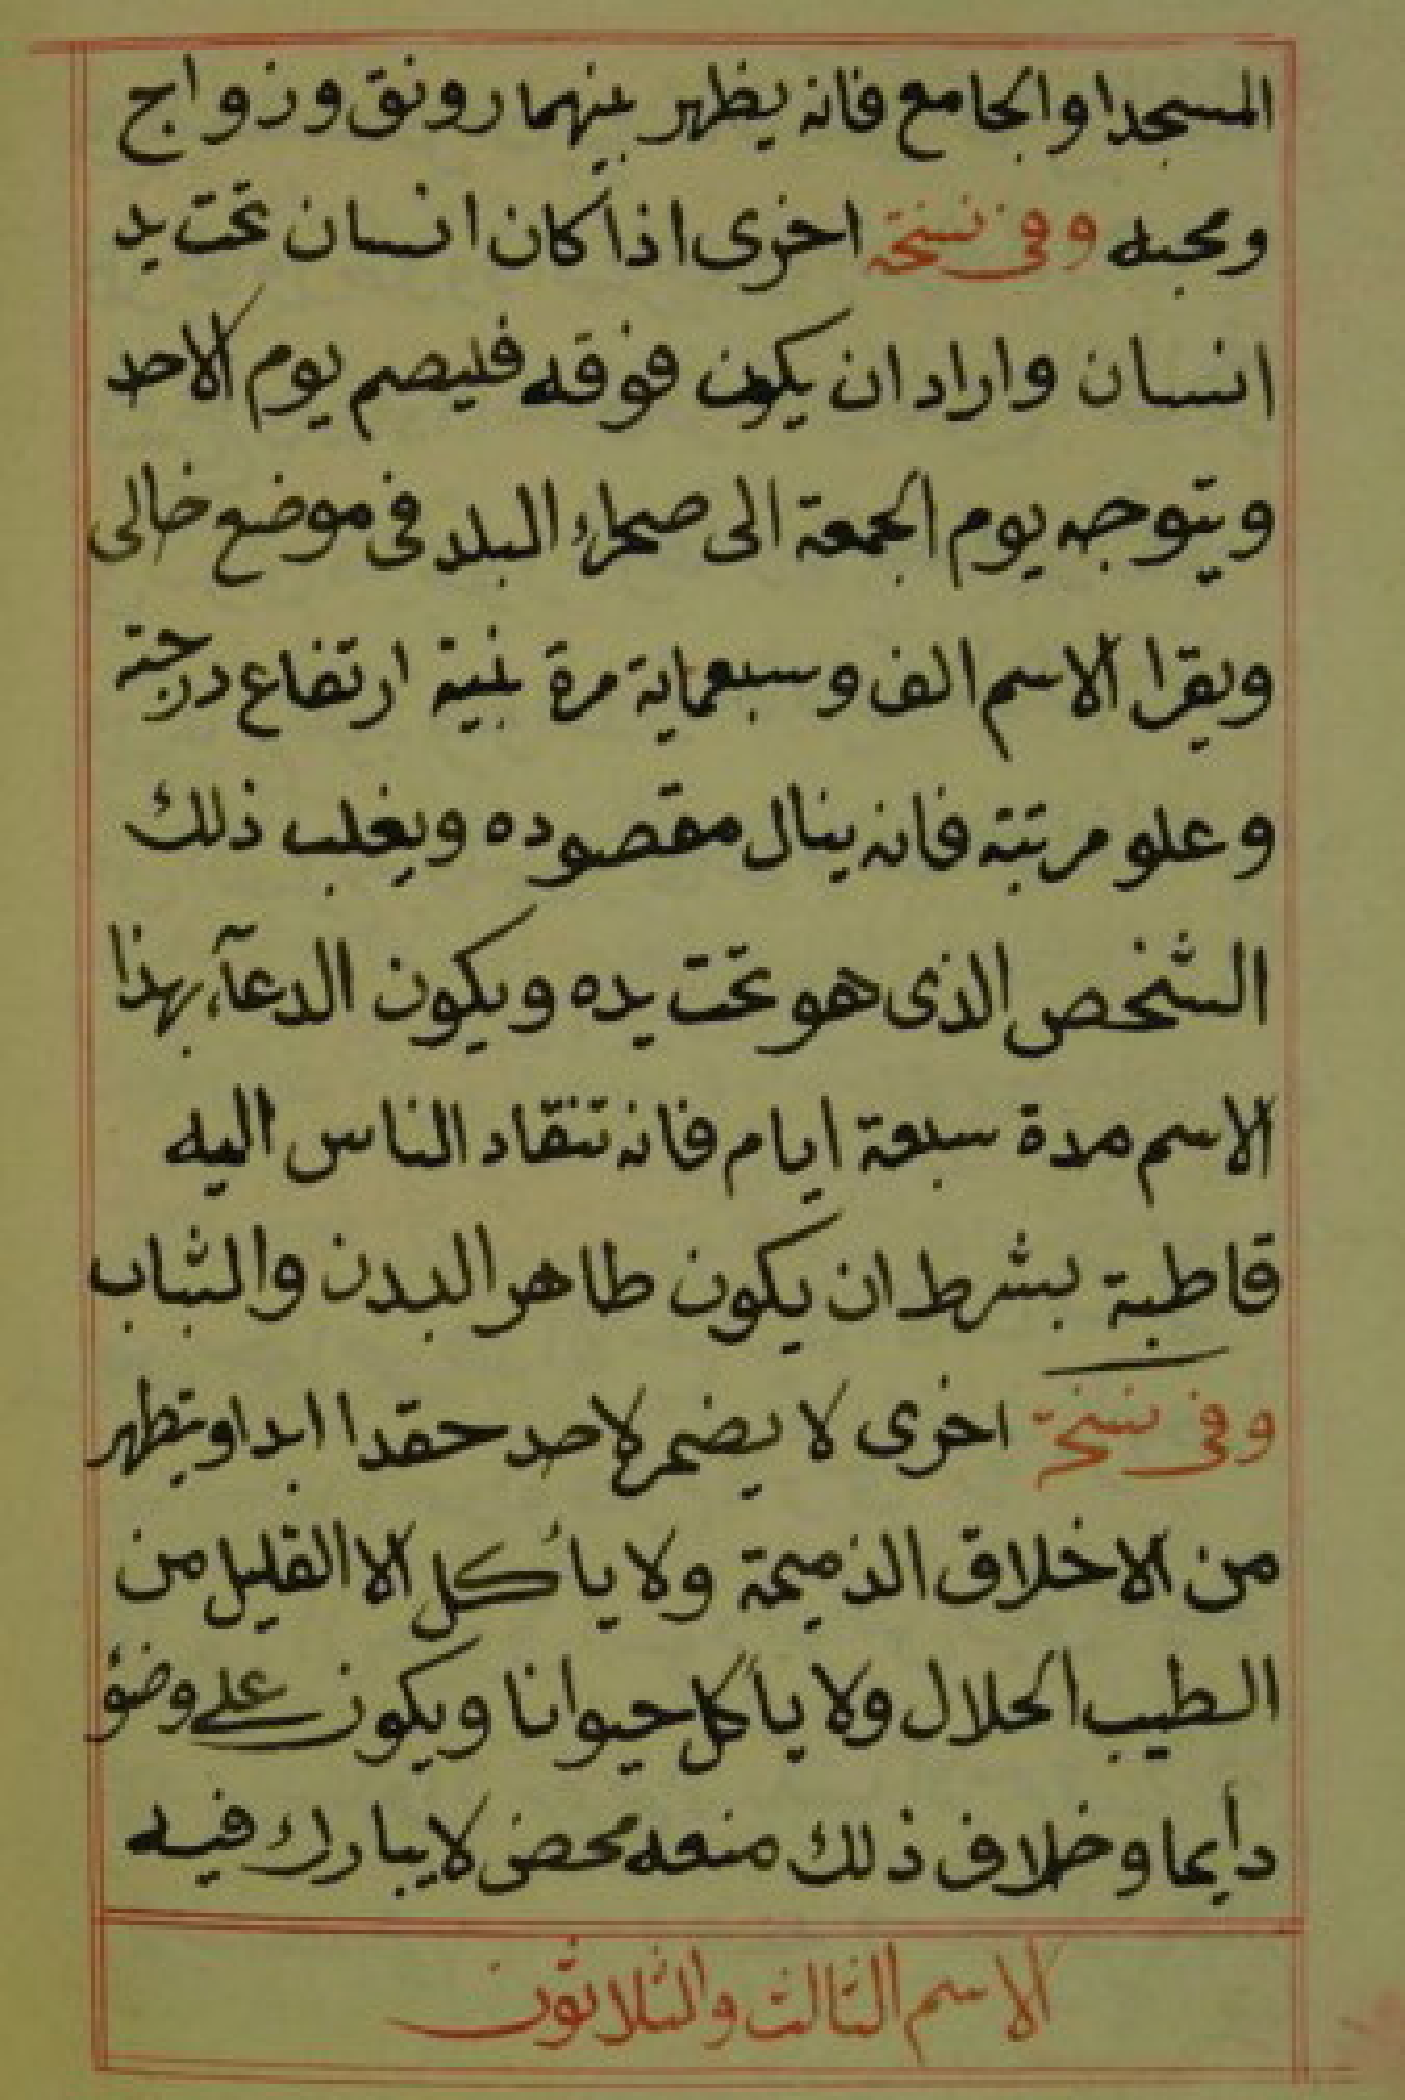 المسجد او الجامع فانه يظهر بينهما رونق وزواج
ومحبه وفى نسخة اخرى اذا كان انسان تحت يد
انسان واراد ان يكون فوقه فليصم يوم الاحد
ويتوجه يوم الجمعة الى صحراء البلد فى موضع خالى
ويقرا الاسم الف وسبعماية مرة بنية ارتفاع درجته
وعلو مرتبته فانه ينال مقصوده ويغلب ذلك
الشخص الذى هو تحت يده ويكون الدعآء بهذا
الاسم مدة سبعة ايام فانه تنقاد الناس اليه
قاطبة بشرط ان يكون طاهر البدن والثياب
وفى نسخة اخرى لا يضمر لاحد حقدا ابدا ويتطهر
من الاخلاق الذميمة ولا يأكل الا القليل من
الطيب الحلال ولا يأكل حيوانا ويكون على وضؤ
دايما وخلاف ذلك منعه محض لا يبارك فيه
الاسم الثالث والثلاثون